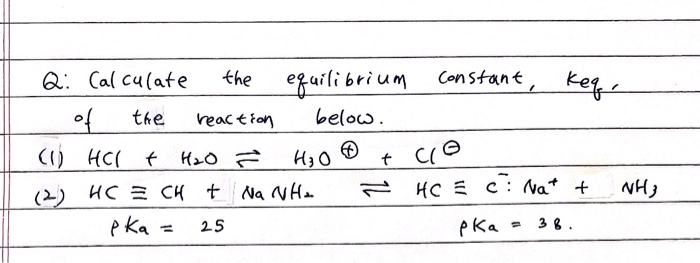 Q: Calculate the equilibrium constant, keq,
of the reaction below.
(1) HCl + H₂O ⇌ H₃O ⊕ + Cl⊖
(2) HC ≡ CH + NaNH₂ ⇌ HC ≡ C̄: Na⁺ + NH₃
pKa = 25 pKa = 38.